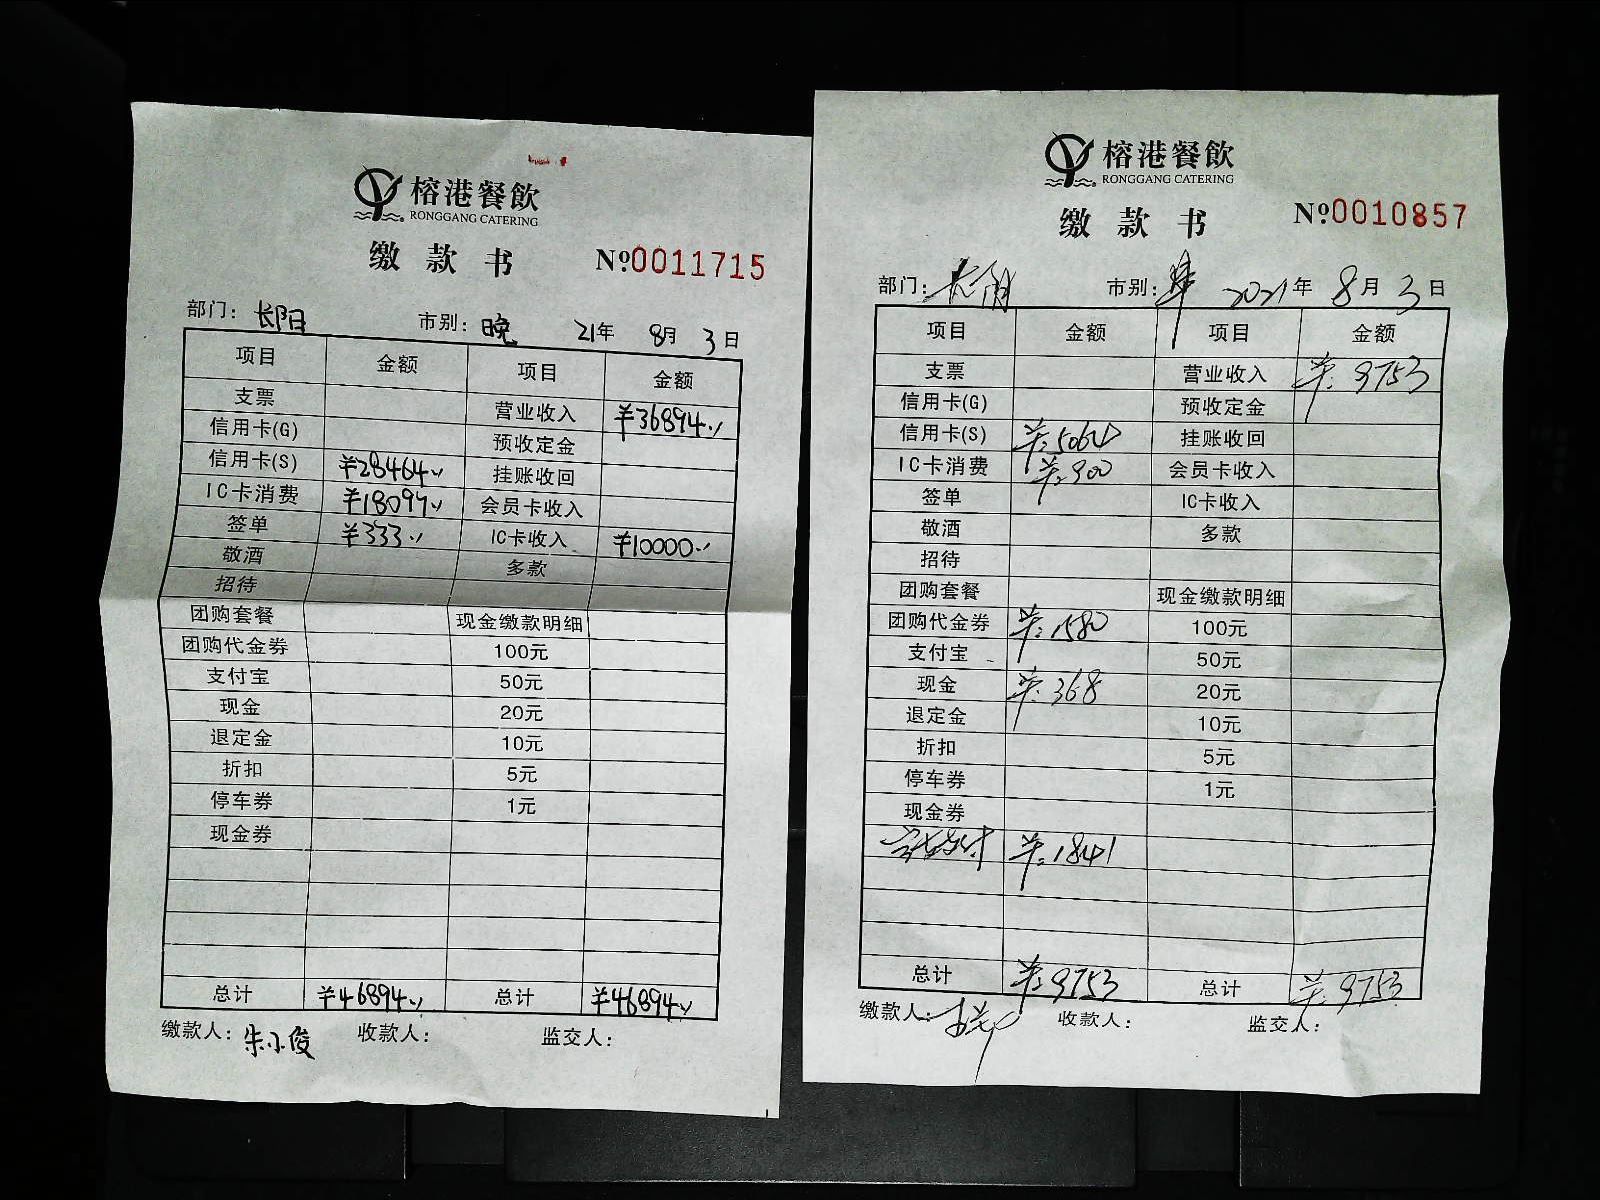 榕港餐飲
RONGGANG CATERING
缴款书 №0011715
部门: 长阳 市别: 晚 21年 8月 3日
项目 金额 项目 金额
支票 营业收入 ¥36894
信用卡(G) 预收定金
信用卡(S) ¥28464 挂账收回
IC卡消费 ¥18097 会员卡收入
签单 ¥333 IC卡收入 ¥10000
敬酒 多款
招待
团购套餐 现金缴款明细
团购代金券 100元
支付宝 50元
现金 20元
退定金 10元
折扣 5元
停车券 1元
现金券
总计 ¥46894 总计 ¥46894
缴款人: 朱小俊 收款人: 监交人:
榕港餐飲
RONGGANG CATERING
缴款书 №0010857
部门: 长阳 市别: 2021年 8月 3日
项目 金额 项目 金额
支票 营业收入 ¥: 9753
信用卡(G) 预收定金
信用卡(S) ¥: 5064 挂账收回
IC卡消费 ¥: 900 会员卡收入
签单 IC卡收入
敬酒 多款
招待
团购套餐 现金缴款明细
团购代金券 ¥: 1580 100元
支付宝 50元
现金 ¥: 368 20元
退定金 10元
折扣 5元
停车券 1元
现金券
¥: 1841
总计 ¥: 9753 总计 ¥: 9753
缴款人: 收款人: 监交人: